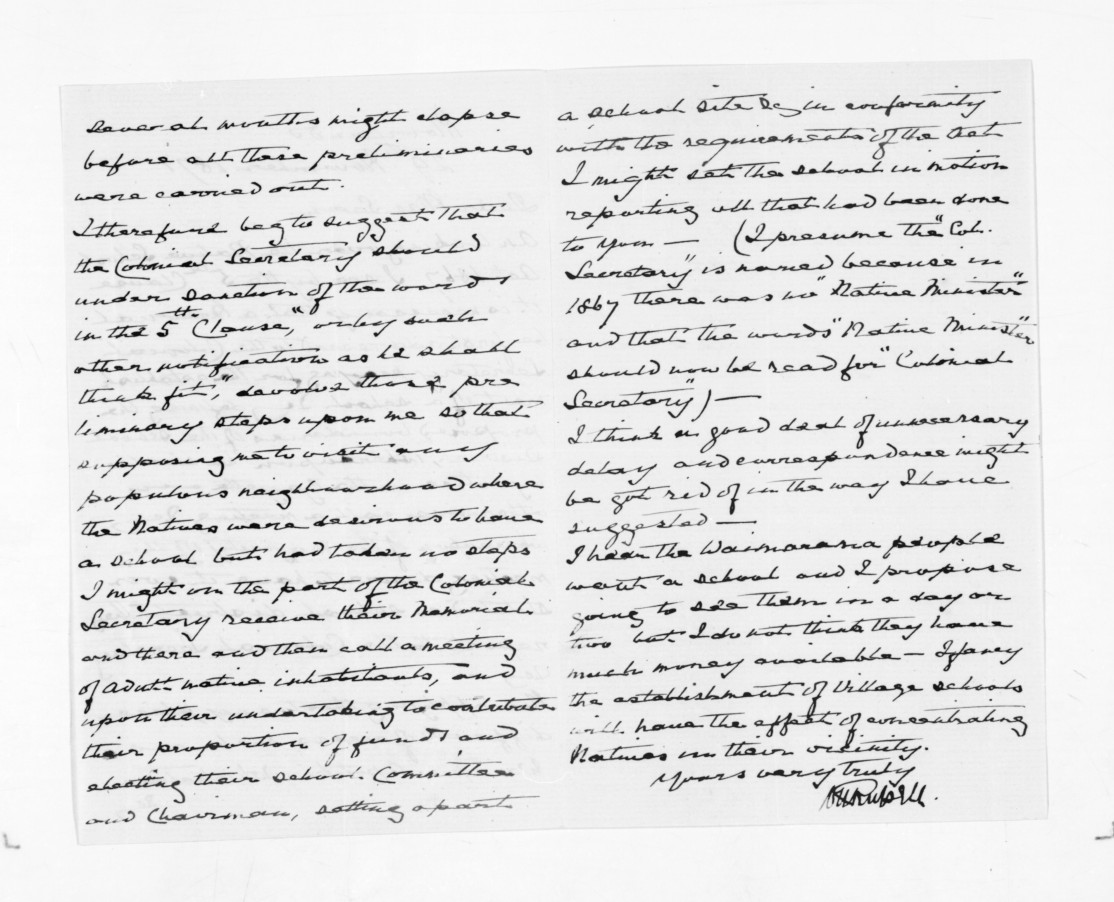 several months might elapse
before all these preliminaries
were carried out.
I therefore beg to suggest that
the Colonial Secretary should
under sanction of the words
in the 5th Clause, "or by such
other notification as he shall
think fit," devolve these pre
liminary steps upon me so that
supposing me to visit any
populous neighbourhood where
the Natives were desirous to have
a school but had taken no steps
I might on the part of the Colonial
Secretary receive their Memorial
and there and then call a meeting
of adult native inhabitants, and
upon their undertaking to contribute
their proportion of funds and
electing their school Committee
and Chairman, setting apart
a school site &c in conformity
with the requirements of the Act
I might set the school in motion
reporting all that had been done
to you — (I presume the "Col.
Secretary" is named because in
1867 there was no "Native Minister"
and that the words "Native Minister"
should now be read for "Colonial
Secretary") —
I think a good deal of unnecessary
delay and correspondence might
be got rid of in the way I have
suggested —
I hear the Waimarama people
want a school and I propose
going to see them in a day or
two but I do not think they have
much money available — I fancy
the establishment of Village schools
will have the effect of concentrating
Natives in their vicinity.
Yours very truly
Russell.